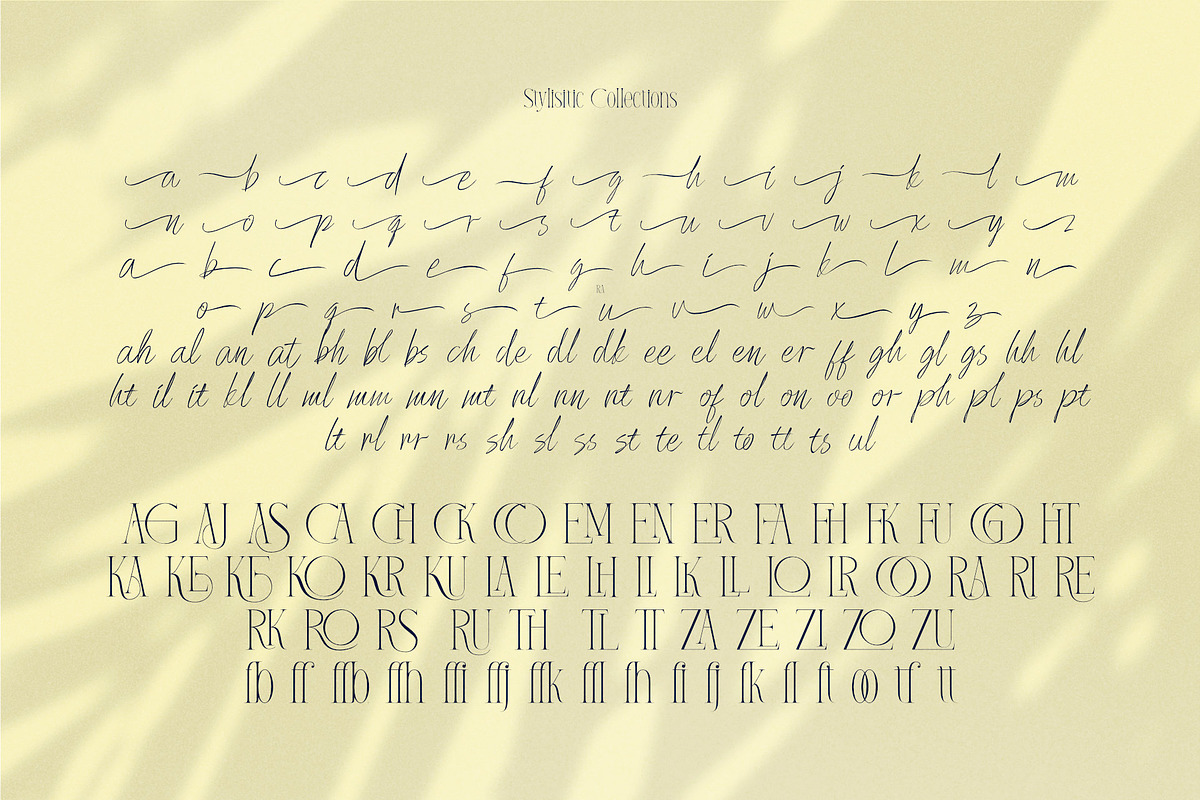 Stylisitic Collections
a b c d e f g h i j k l m
n o p q r s t u v w x y z
a b c d e f g h i j k l m n
RA
o p q r s t u v w x y z
ah al an at bh bl bs ch de dl dk ee el en er ff gh gl gs hh hl
ht il it kl ll ml mm mn mt nl nn nt nr of ol on oo or ph pl ps pt
lt rl rr rs sh sl ss st te tl to tt ts ul
AG AJ AS CA CH CK CO EM EN ER FA FH FK FU GO HT
KA KE KO KR KU LA LE LH LI LK LL LO LR OO RA RI RE
RK RO RS RU TH TL TT ZA ZE ZI ZO ZU
fb ff ffb ffh ffi ffj ffk ffl fh fi fj fk fl ft oo tf tt